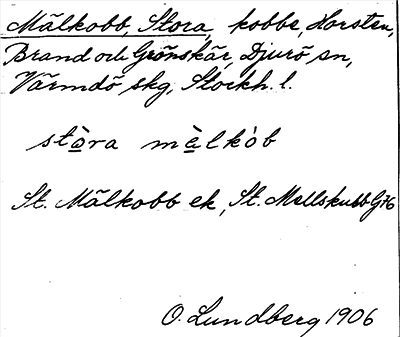 Mälkobb, Stora, kobbe, Horsten,
Brand och Grönskär, Djurö sn,
Värmdö skg, Stockh. l.
stòra mä̀lkòb
St. Mälkobb ek, St. Mellskubb G76
O. Lundberg 1906